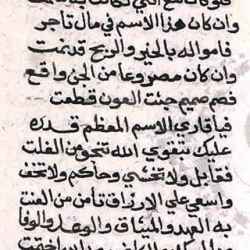 وان كان هذا الاسم في مال تاجر
فامواله بالخير والربح قد نمت
وان كان مصروعا من الجن واقع
فصم صميم جئت العون قطعت
فيا قاري الاسم المعظم قدره
عليك بتقوي الله تنجو من الفلت
فقابل ولا تخشي وحاكم ولا تخف
واسعي علي الارزاق تأمن من العنت
به العهد والميثاق والوعد والوفا